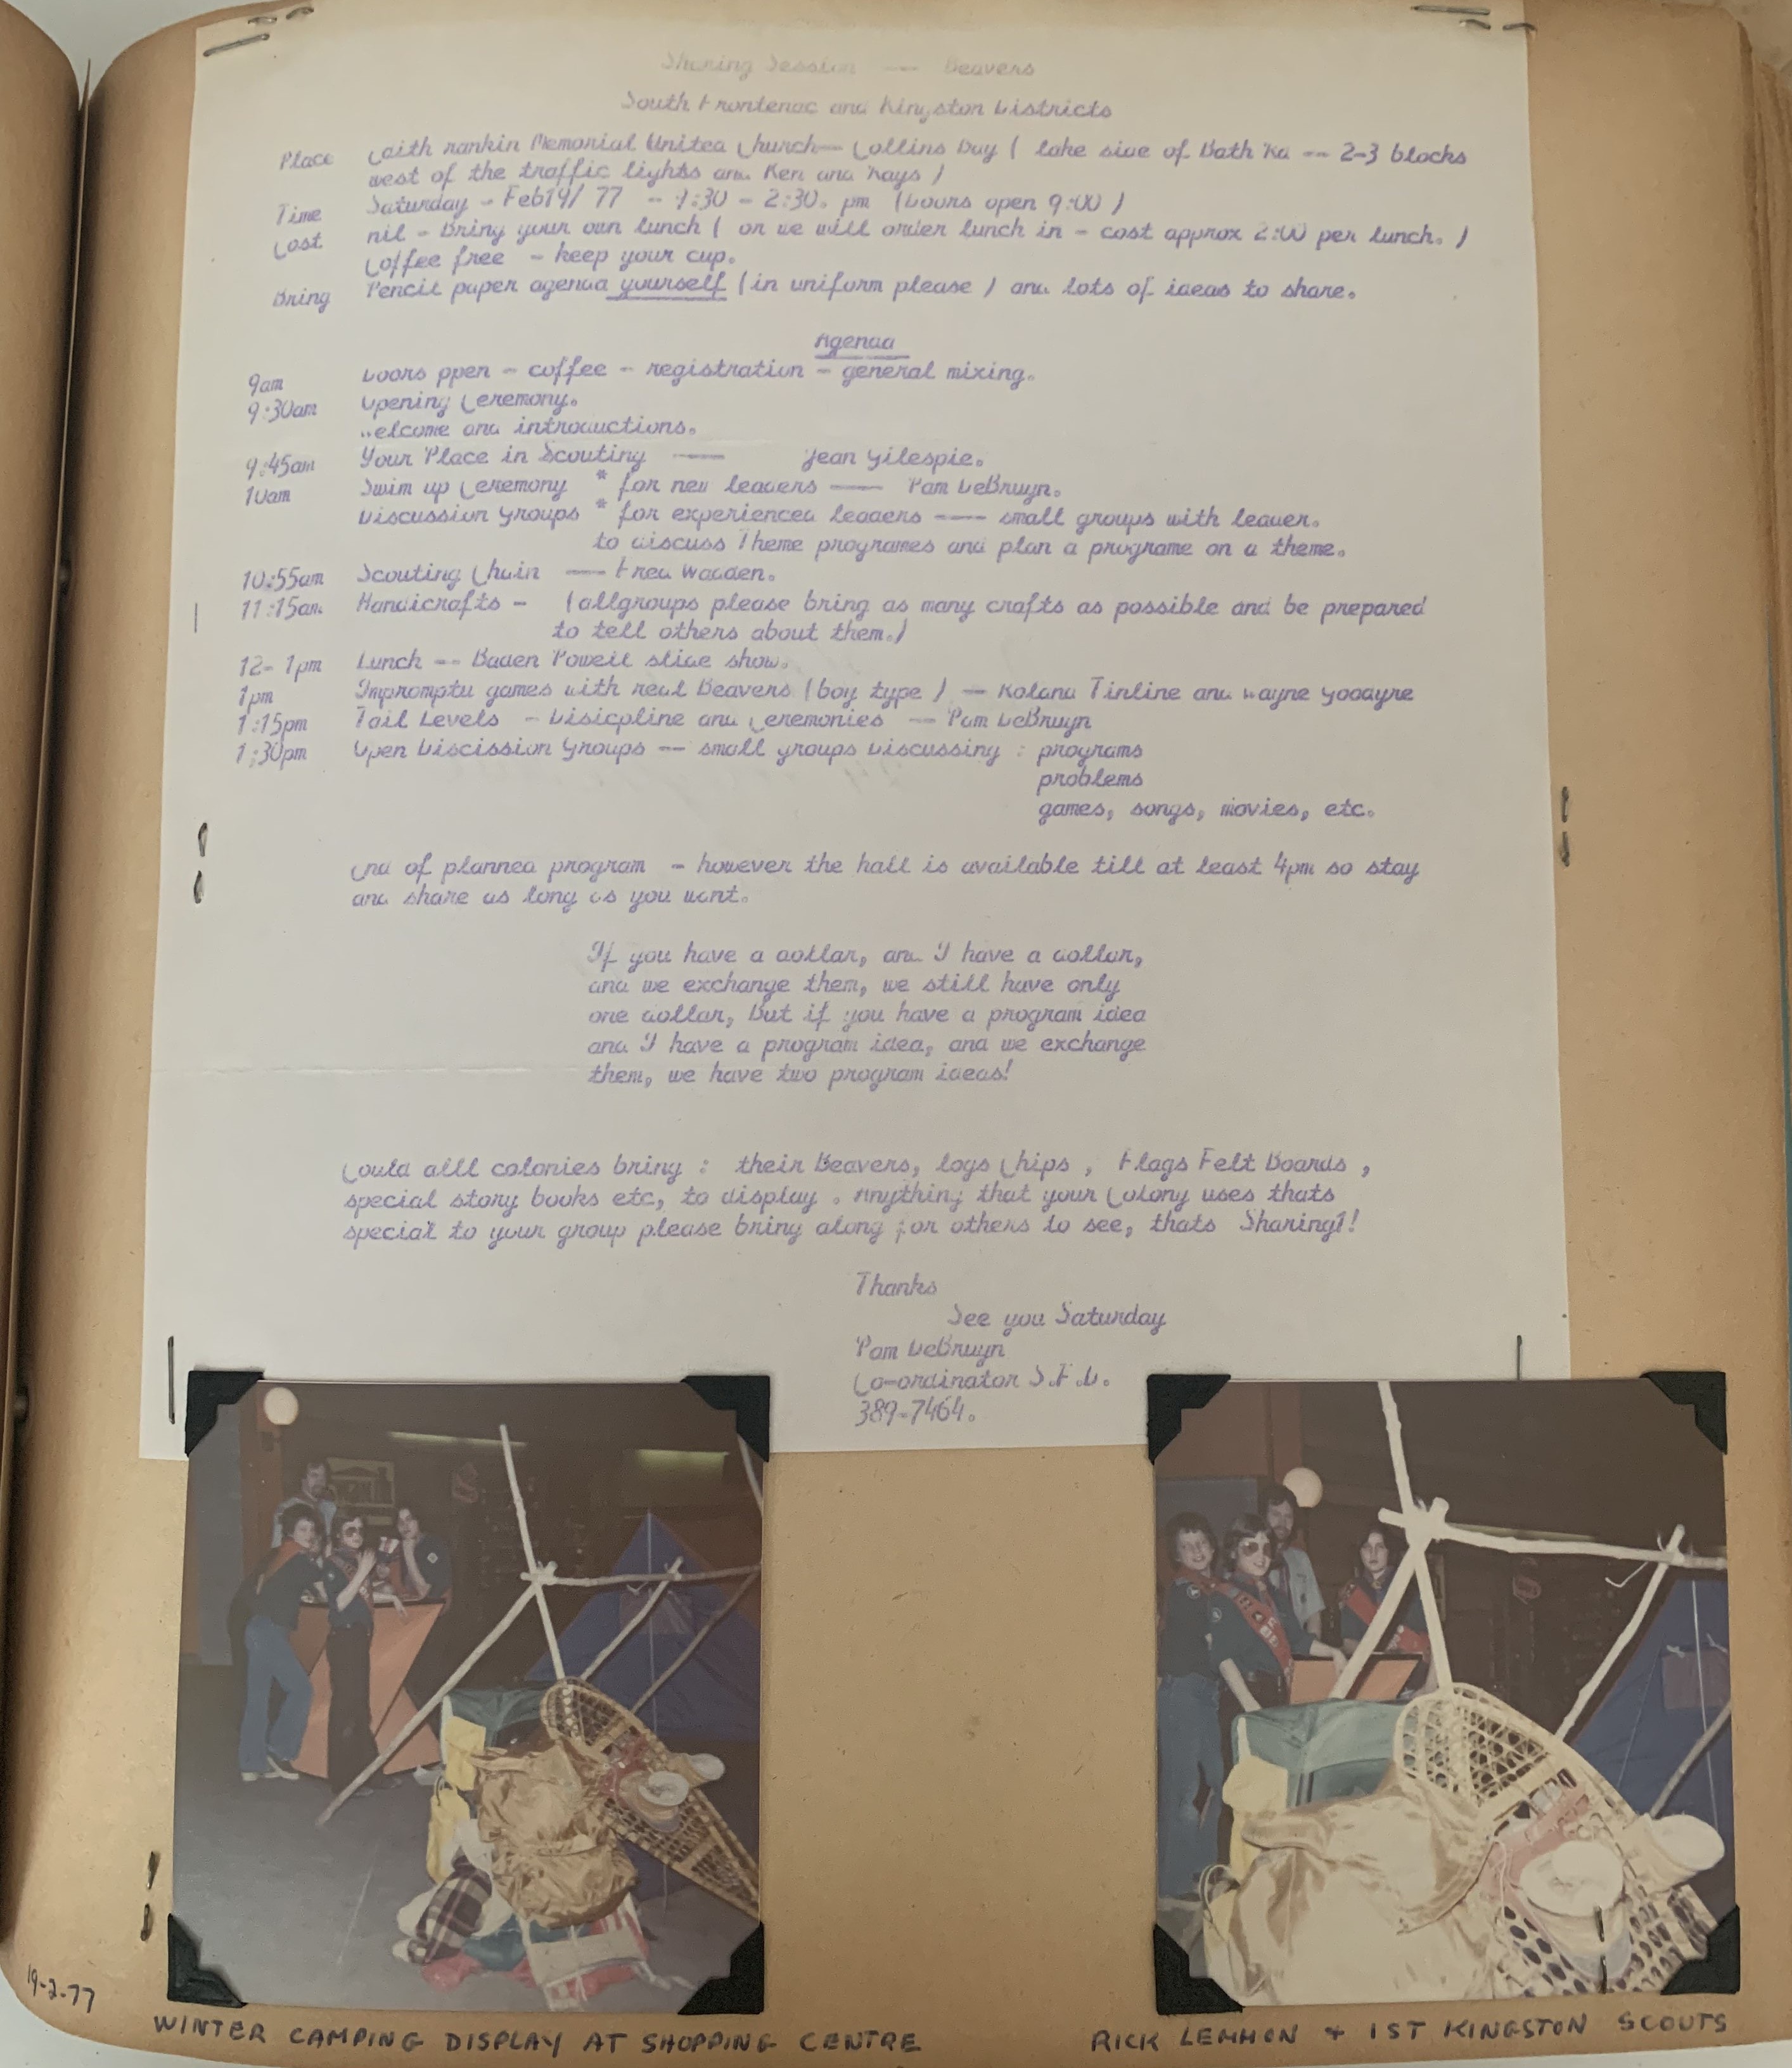 Sharing Session --- Beavers
South Frontenac and Kingston Districts
Place Faith Rankin Memorial United Church-- Collins Bay ( lake side of Bath Rd -- 2-3 blocks
west of the traffic lights and Ken and Rays )
Time Saturday - Feb19/ 77 -- 9:30 - 2:30. pm (Doors open 9:00 )
Cost nil - Bring your own lunch ( or we will order lunch in - cost approx 2:00 per lunch. )
Coffee free - keep your cup.
Bring Pencil paper agenda yourself (in uniform please ) and lots of ideas to share.
Agenda
9am Doors ppen - coffee - registration - general mixing.
9:30am Opening Ceremony.
Welcome and introductions.
9:45am Your Place in Scouting ---- Jean Gilespie.
10am Swim up Ceremony * for new leaders ---- Pam DeBruyn.
Discussion Groups * for experienced leaders ---- small groups with leader.
to discuss Theme programes and plan a programe on a theme.
10:55am Scouting Chain --- Fred Wadden.
11:15am Handicrafts - (allgroups please bring as many crafts as possible and be prepared
to tell others about them.)
12- 1pm Lunch -- Baden Powell slide show.
1pm Impromptu games with real Beavers (boy type ) -- Roland Tinline and Wayne
1:15pm Tail Levels - Disicpline and Ceremonies -- Pam DeBruyn
1:30pm Open Discission Groups -- small groups Discussing : programs
problems
games, songs, movies, etc.
End of planned program - however the hall is available till at least 4pm so stay
and share as long as you want.
If you have a dollar, and I have a dollar,
and we exchange them, we still have only
one dollar, But if you have a program idea
and I have a program idea, and we exchange
them, we have two program ideas!
Could alll colonies bring : their Beavers, logs Chips , Flags Felt Boards ,
special story books etc, to display . Anything that your Colony uses thats
special to your group please bring along for others to see, thats Sharing1!
Thanks
See you Saturday
Pam DeBruyn
Co-ordinator S.F.D.
389-7464.
19-2-77
WINTER CAMPING DISPLAY AT SHOPPING CENTRE
RICK LEMMON + 1ST KINGSTON SCOUTS